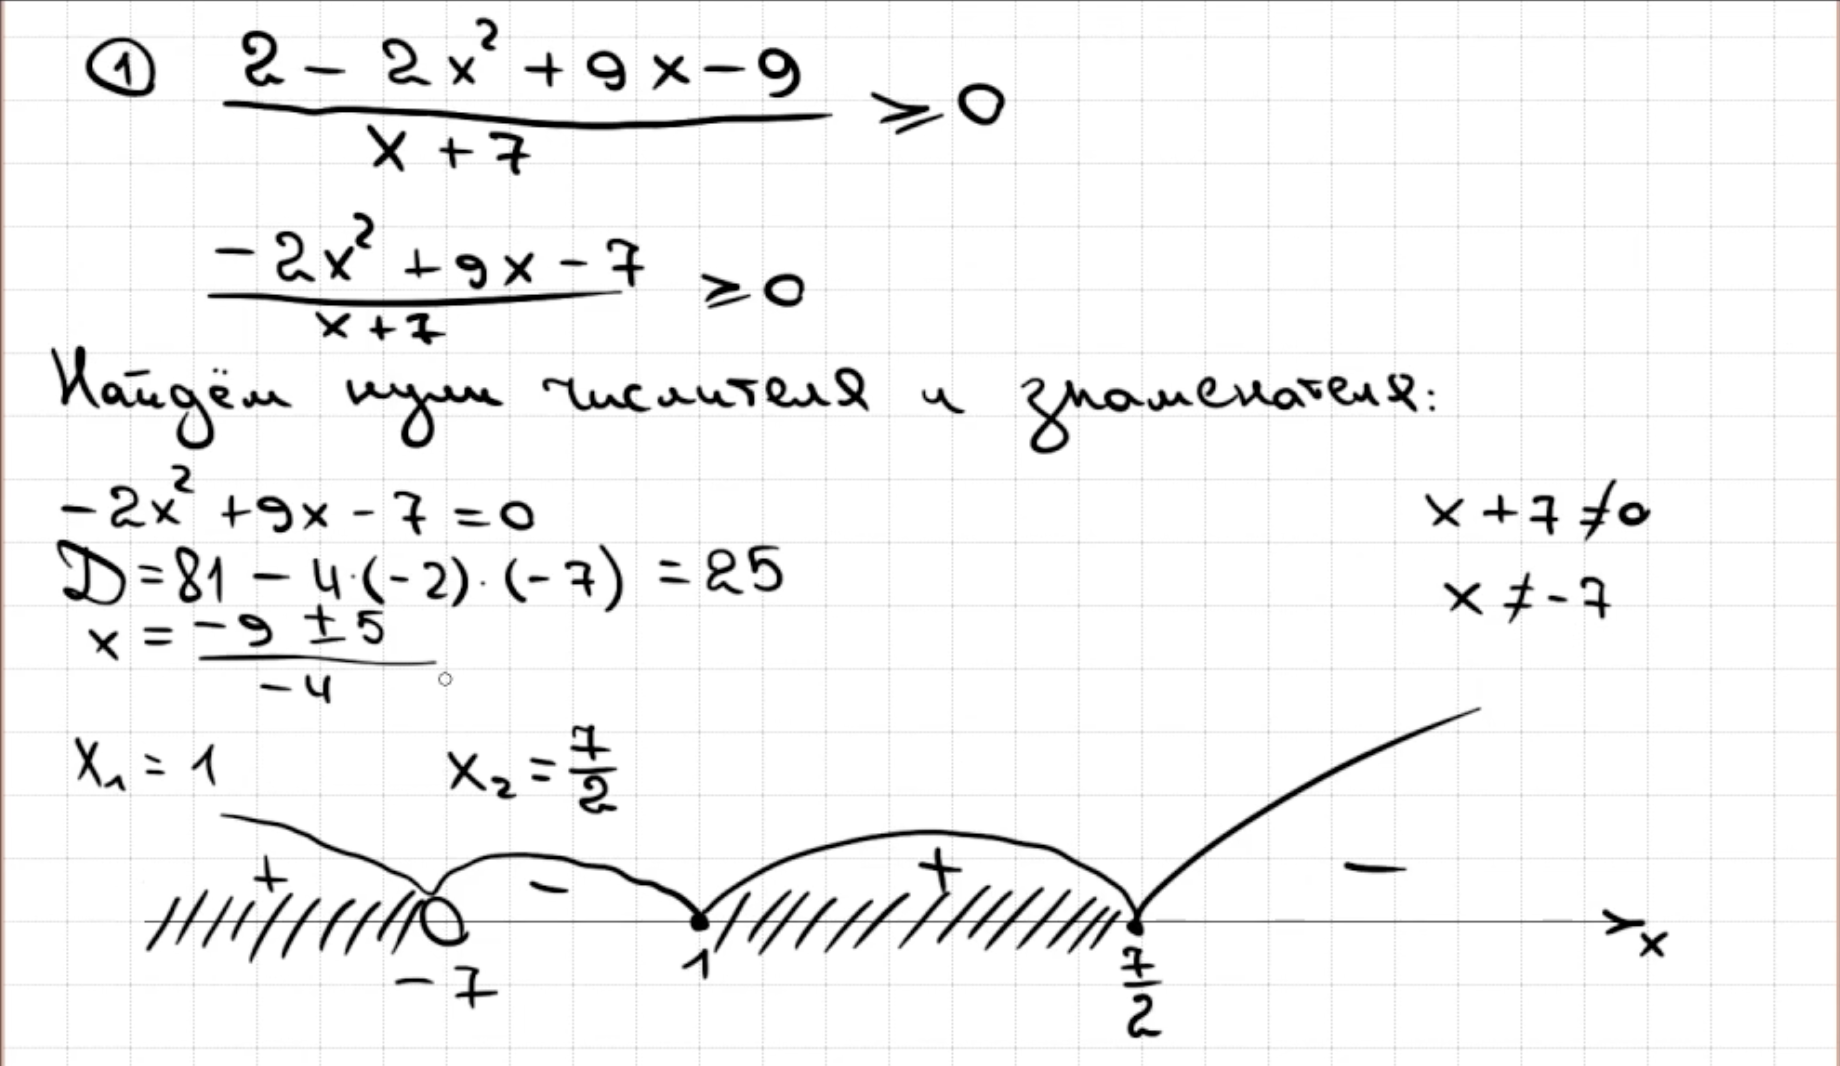 ① (2 - 2x² + 9x - 9)/(x + 7) ⩾ 0
(-2x² + 9x - 7)/(x + 7) ⩾ 0
Найдём нули числителя и знаменателя:
-2x² + 9x - 7 = 0
x + 7 ≠ 0
D = 81 - 4·(-2)·(-7) = 25
x ≠ -7
x = (-9 ± 5)/(-4)
x₁ = 1 x₂ = 7/2
+ - + -
-7 1 7/2 x